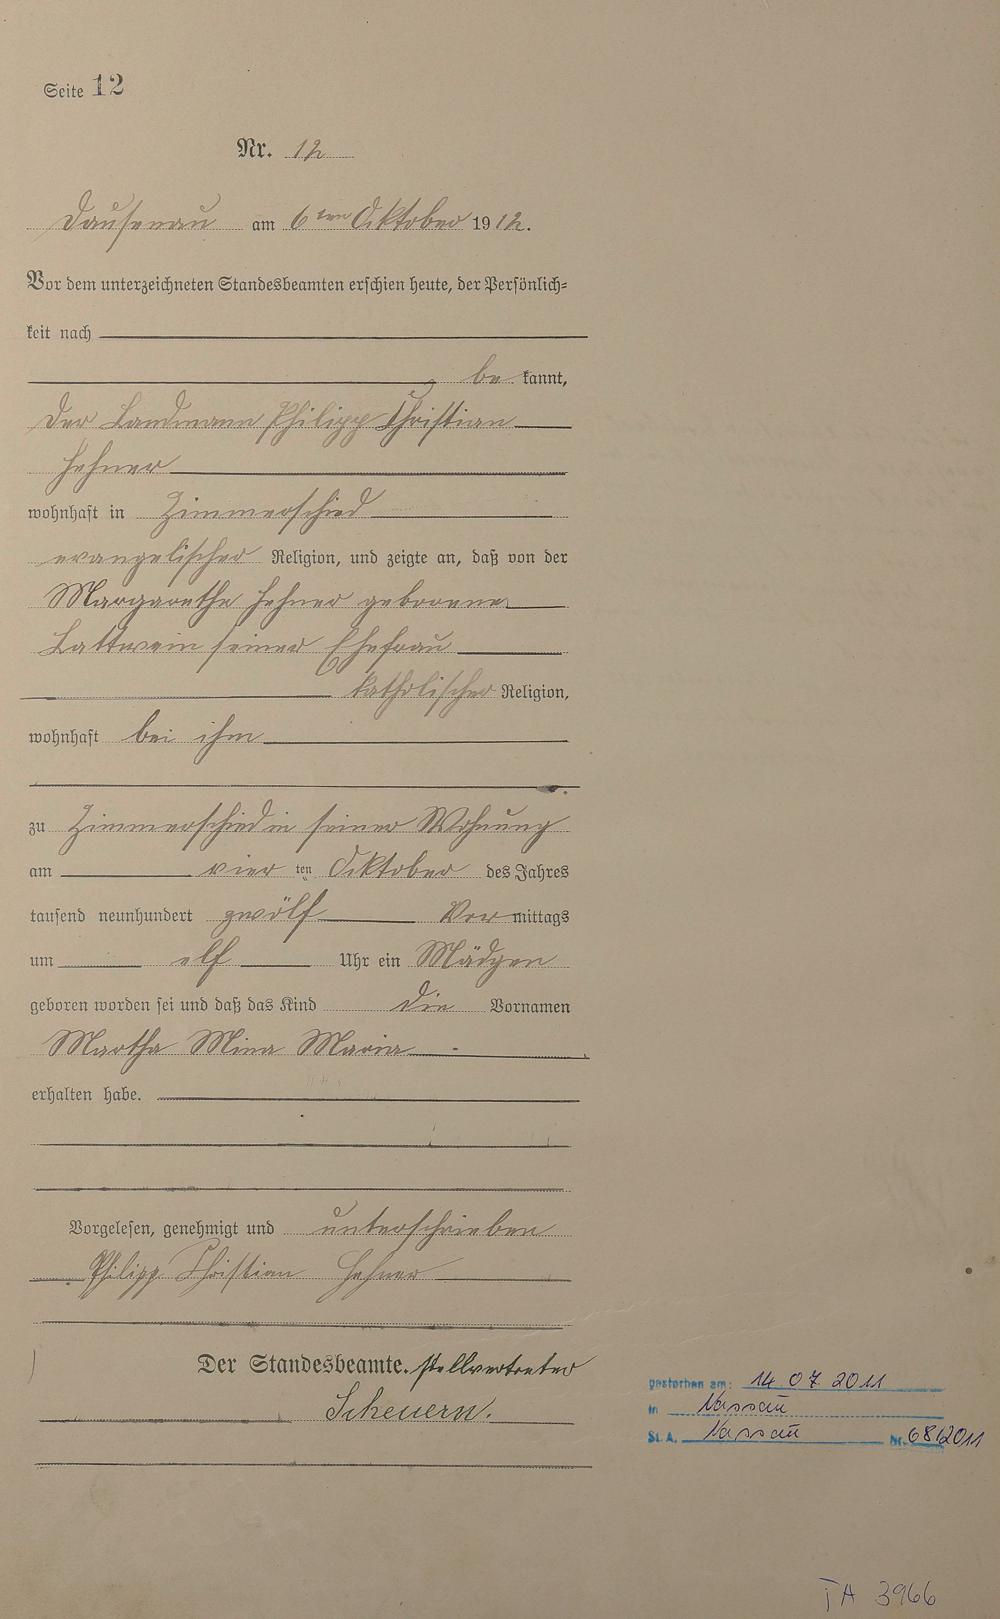 Seite 12
Nr. 12
Dausenau am 6ten Oktober 1912.
Vor dem unterzeichneten Standesbeamten erschien heute, der Persönlich-
keit nach
be kannt,
der Landmann Philipp Christian
Hehner
wohnhaft in Zimmerschied
evangelischer Religion, und zeigte an, daß von der
Margarethe Hehner geborene
Lattwein seiner Ehefrau
katholischer Religion,
wohnhaft bei ihm
zu Zimmerschied in seiner Wohnung
am vier ten Oktober des Jahres
tausend neunhundert zwölf Vor mittags
um elf Uhr ein Mädgen
geboren worden sei und daß das Kind die Vornamen
Martha Mina Maria
erhalten habe.
Vorgelesen, genehmigt und unterschrieben
Philipp Christian Hehner
Der Standesbeamte. stellvertreter
Scheuern.
gestorben am: 14.07.2011
in Nassau
St. A. Nassau Nr. 68/2011
TA 3966